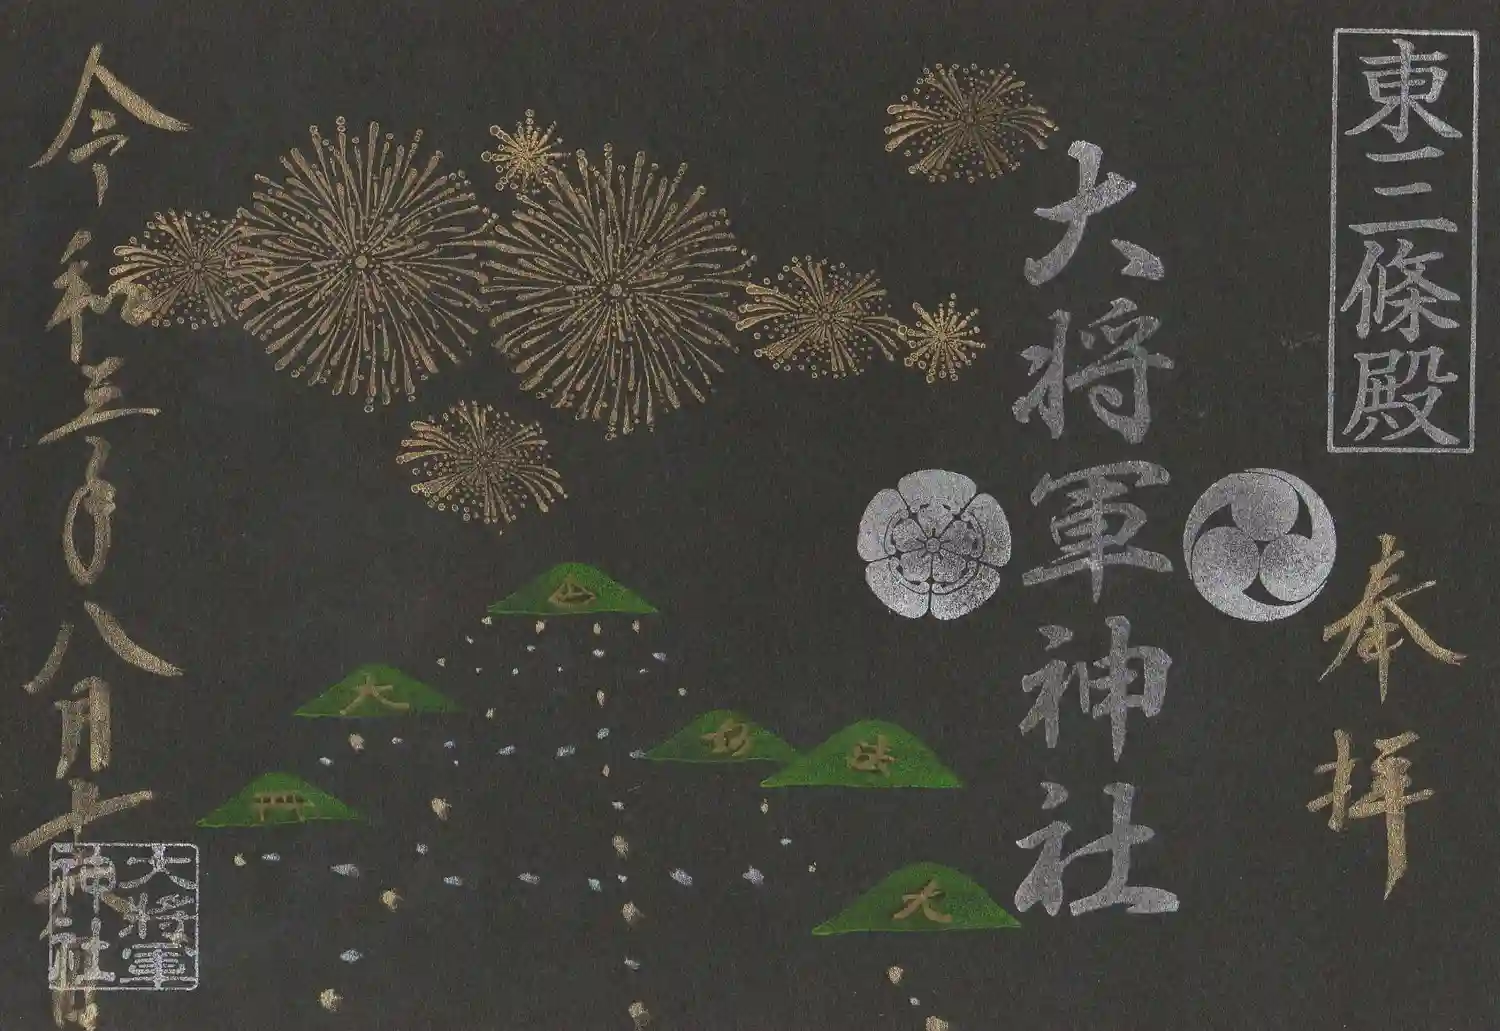 東三條殿
奉拝
大将軍神社
令和三年八月十六日
大將軍
神社
舟
大
妙
法
大